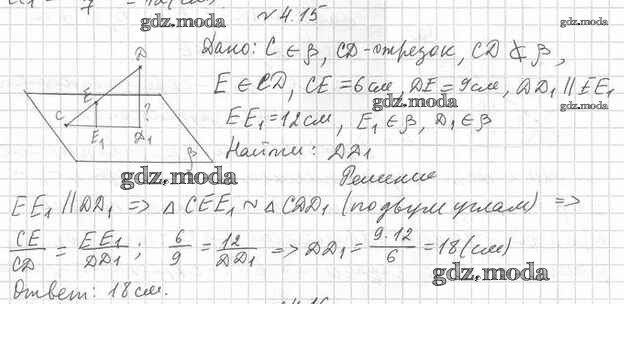 № 4.15
gdz.moda
gdz.moda
Дано: C ∈ β, CD - отрезок, CD ⊄ β,
E ∈ CD, CE = 6 см, DE = 9 см, DD₁ || EE₁
gdz.moda
gdz.moda
EE₁ = 12 см, E₁ ∈ β, D₁ ∈ β
Найти: DD₁
D
E
C
?
E₁
D₁
β
gdz.moda
Решение
EE₁ || DD₁ => △ CEE₁ ~ △ CDD₁ (по двум углам) =>
CE/CD = EE₁/DD₁; 6/9 = 12/DD₁ => DD₁ = 9·12/6 = 18 (см)
gdz.moda
Ответ: 18 см.